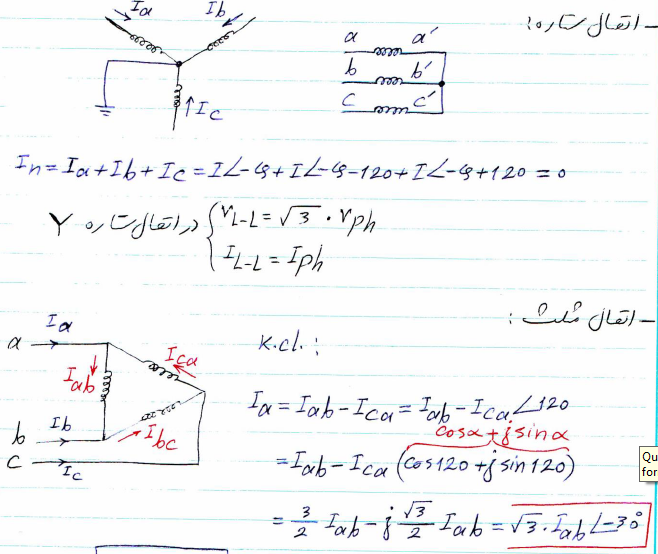 - اتصال ستاره:
Ia Ib
a a'
b b'
c c'
Ic
In = Ia + Ib + Ic = I∠-φ + I∠-φ-120 + I∠-φ+120 = 0
در اتصال ستاره Y { VL-L = √3 · Vph
IL-L = Iph
- اتصال مثلث:
a Ia
Ica
Iab
b Ib
Ibc
c Ic
K.cl. :
Ia = Iab - Ica = Iab - Ica∠120
cosα + j sinα
= Iab - Ica (cos120 + j sin120)
= 3/2 Iab - j √3/2 Iab = √3 · Iab∠-30°
Qu
for